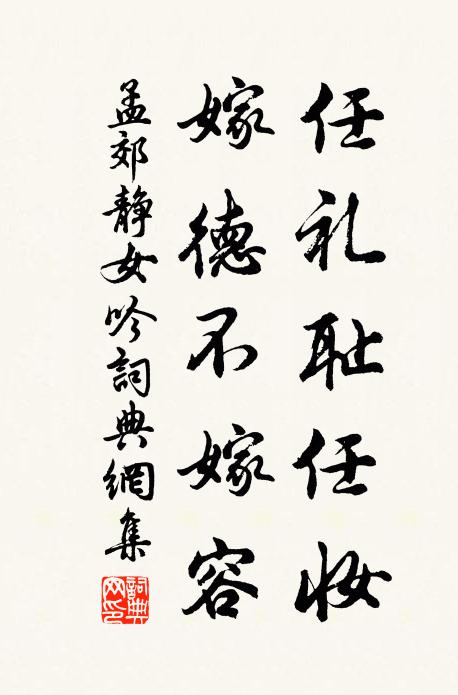 任礼耻任妆
嫁德不嫁容
孟郊静女吟詞典網集
詞典网印